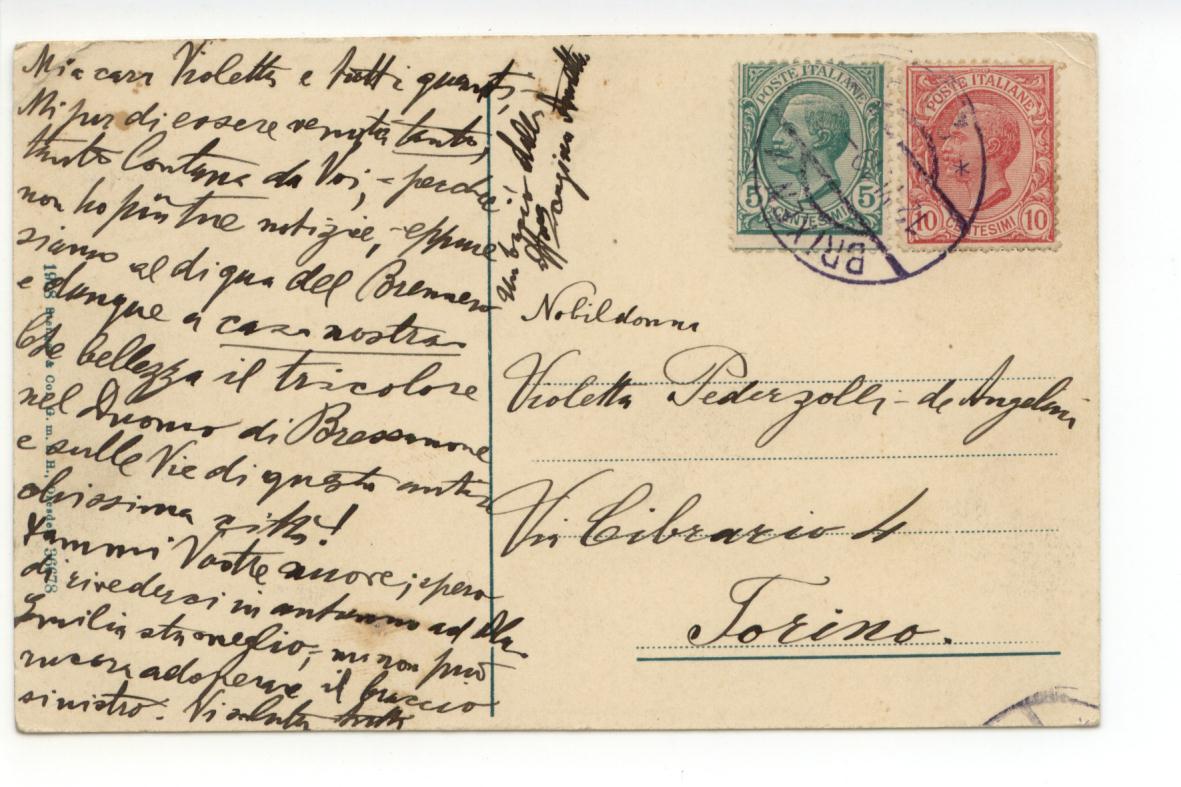 Mia cara Violetta e tutti quanti, -
Mi par di essere venuta tanto,
tanto lontana da Voi, - perchè
non ho più tue notizie, - eppure
siamo al di qua del Brennero
e dunque a casa nostra
Che bellezza il tricolore
nel Duomo di Bressanone
e sulle Vie di questa anti
chissima città!
Dammi Vostre nuove; spero
di rivederci in autunno ad Ala.
Emilia sta meglio, - ma non può
ancora adoperare il braccio
sinistro. Vi saluta tutti
Un bacio dalla
aff.ma
cugina
Nobildonna
Violetta Pederzolli - de Angelini
Via Cibrario 4
Torino.
POSTE ITALIANE
5 5
CENTESIMI
POSTE ITALIANE
10 10
CENTESIMI
BRIX
1908 & Co. G. m. b. H., Dresden 36678